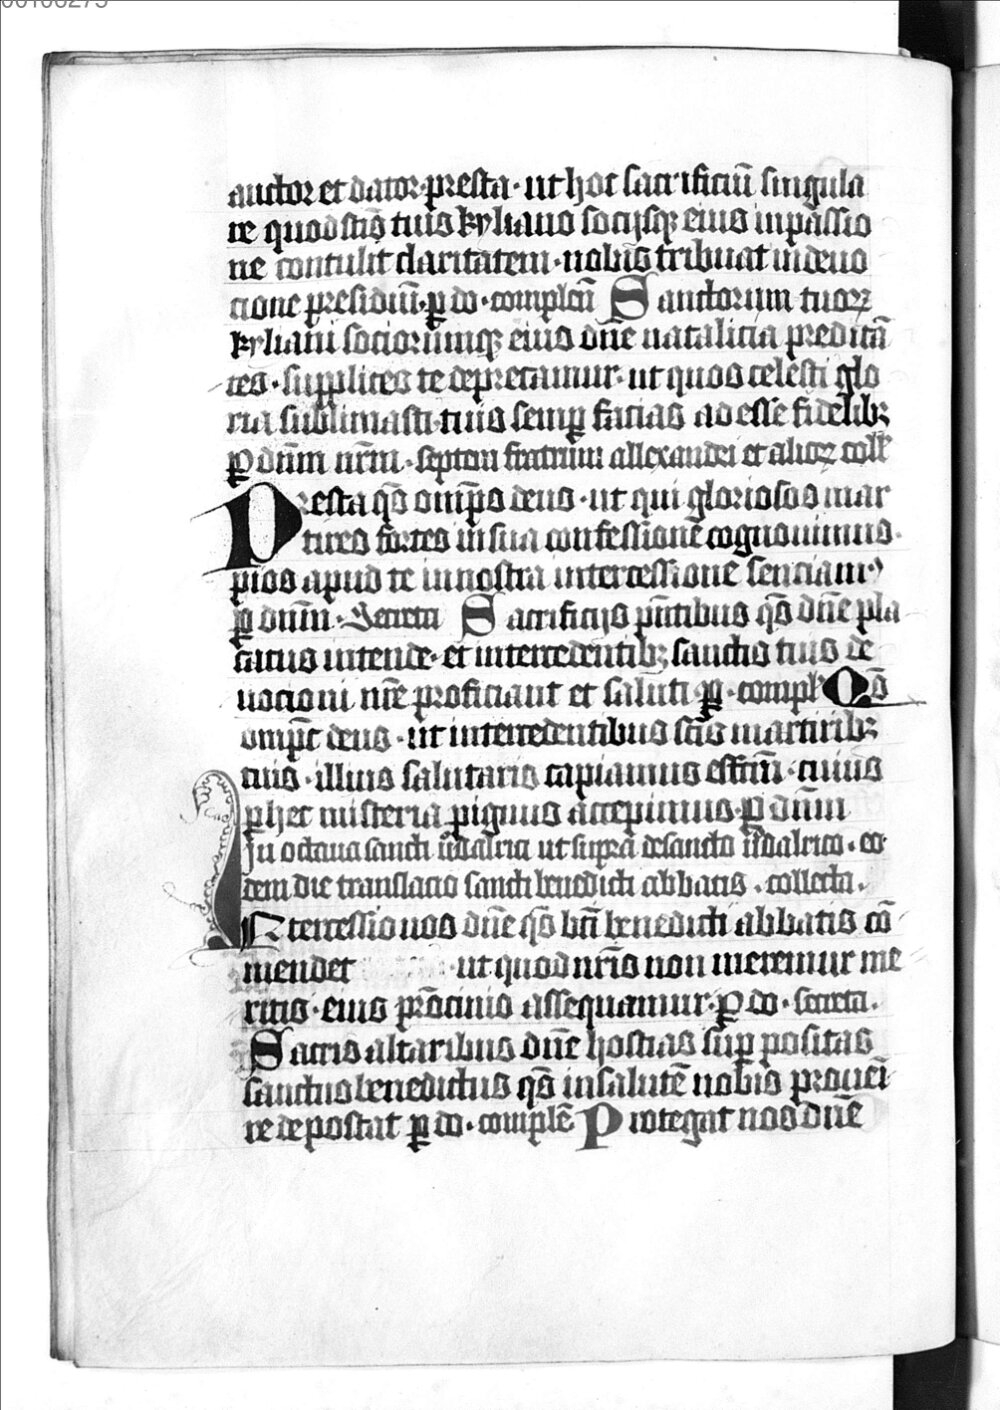 auctor et dator presta · ut hoc sacrificiū singula
re quod sc̄is tuis kyliano socijsqꝫ eius in passio
ne contulit claritatem · nobis tribuat in deuo
cione presidiū · ꝑ do · complen̄ Sanctorum tuoꝝ
kyliani sociorūmqꝫ eius dn̄e natalicia predicā
tes · supplices te deprecamur · ut quos celesti glo
ria sublimasti · tuis semꝑ facias adesse fidelibꝫ
ꝑ dn̄m nr̄m · septem fratrum allexandri et alioꝝ coll̄
Presta qs̄ omīps deus · ut qui gloriosos mar
tires fortes in sua confessione cognouimus ·
pios apud te in nostra intercessione senciam᷒
ꝑ dn̄m · Secreta Sacrificijs pn̄tibus qs̄ dn̄e pla
catus intende · et intercedentibꝫ sanctis tuis de
uocioni nr̄e proficiant et saluti ꝑ · compl̄ Qs̄
omīpc deus · ut intercedentibus sc̄is martiribꝫ
tuis · illius salutaris capiamus effc̄m · cuius
ꝑ hec misteria pignus accepimus · ꝑ dn̄m
In octaua sancti ůdalrici ut supra de sancto ůdalrico · eo
dem die translacio sancti benedicti abbatis · collecta ·
INtercessio nos dn̄e qs̄ bt̄i benedicti abbatis cō
mendet · ut quod nr̄is non meremur me
ritis · eius pr̄ocinio assequamur · ꝑ do · secreta ·
Sacris altaribus dn̄e hostias suꝑ positas
sanctus benedictus qs̄ in salutē nobis prouenī
re deposcat ꝑ do · complē Protegat nos dn̄e